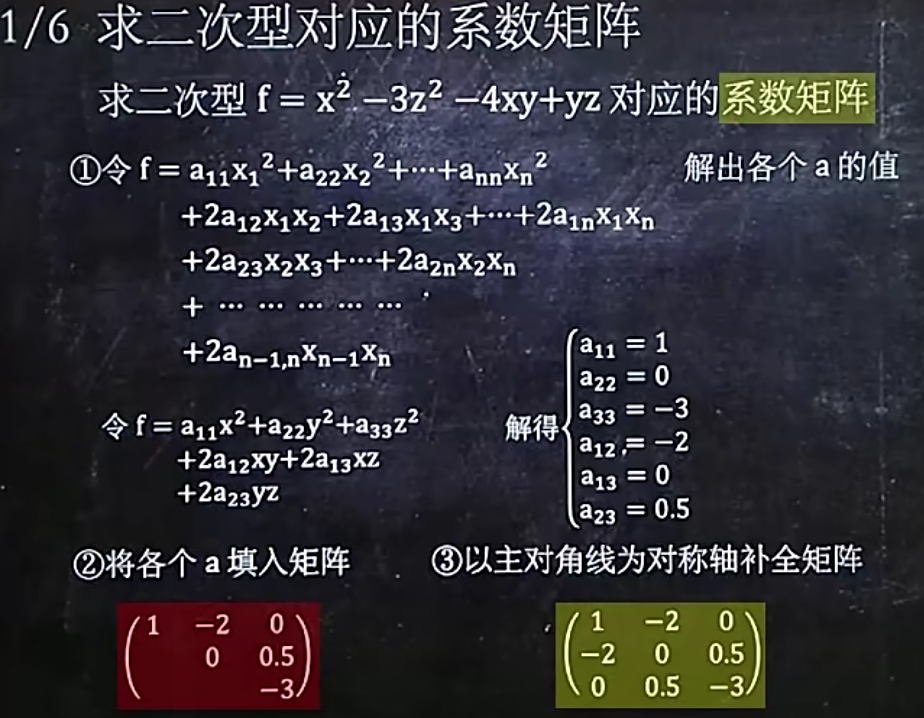 1/6 求二次型对应的系数矩阵
求二次型 f = x² −3z² −4xy+yz 对应的系数矩阵
①令 f = a₁₁x₁²+a₂₂x₂²+⋯+aₙₙxₙ² 解出各个 a 的值
+2a₁₂x₁x₂+2a₁₃x₁x₃+⋯+2a₁ₙx₁xₙ
+2a₂₃x₂x₃+⋯+2a₂ₙx₂xₙ
+ ⋯ ⋯ ⋯ ⋯ ⋯
+2aₙ₋₁,ₙxₙ₋₁xₙ
令 f = a₁₁x²+a₂₂y²+a₃₃z²
+2a₁₂xy+2a₁₃xz
+2a₂₃yz
解得
a₁₁ = 1
a₂₂ = 0
a₃₃ = −3
a₁₂ = −2
a₁₃ = 0
a₂₃ = 0.5
②将各个 a 填入矩阵
1 −2 0
0 0.5
−3
③以主对角线为对称轴补全矩阵
1 −2 0
−2 0 0.5
0 0.5 −3